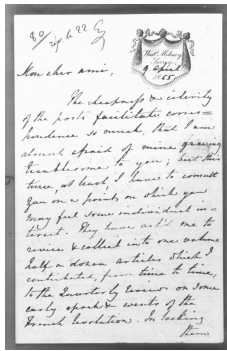 West Molesey
Surrey
9 April
1855
Mon cher ami,
The cheapness & celerity
of the posts facilitate corres=
pondence so much, that I am
almost afraid of mine growing
troublesome to you; but this
time, at least, I have to consult
you on a point on which you
may feel some individual in=
terest. They have ask'd me to
revise & collect into one volume
half a dozen articles which I
contributed, from time to time,
to the Quarterly Review on some
early epochs & events of the
French Revolution. In looking
them